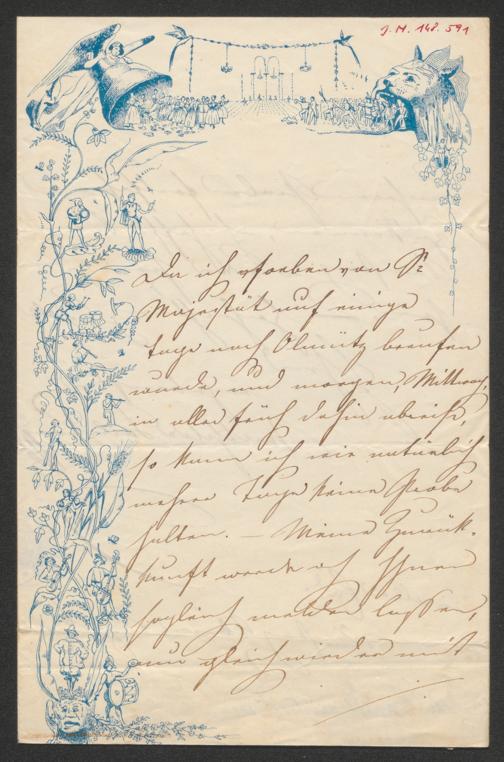 J. N. 148.591
Da ich soeben von Sr
Majestät auf einige
Tage nach Olmütz berufen
wurde, und morgen, Mittwoch,
in aller früh dahin abreise,
so kann ich wie natürlich
mehrere Tage keine Probe
halten. – Meine Zurück-
kunft werde ich Ihnen
sogleich melden lassen,
um gleich wieder mit